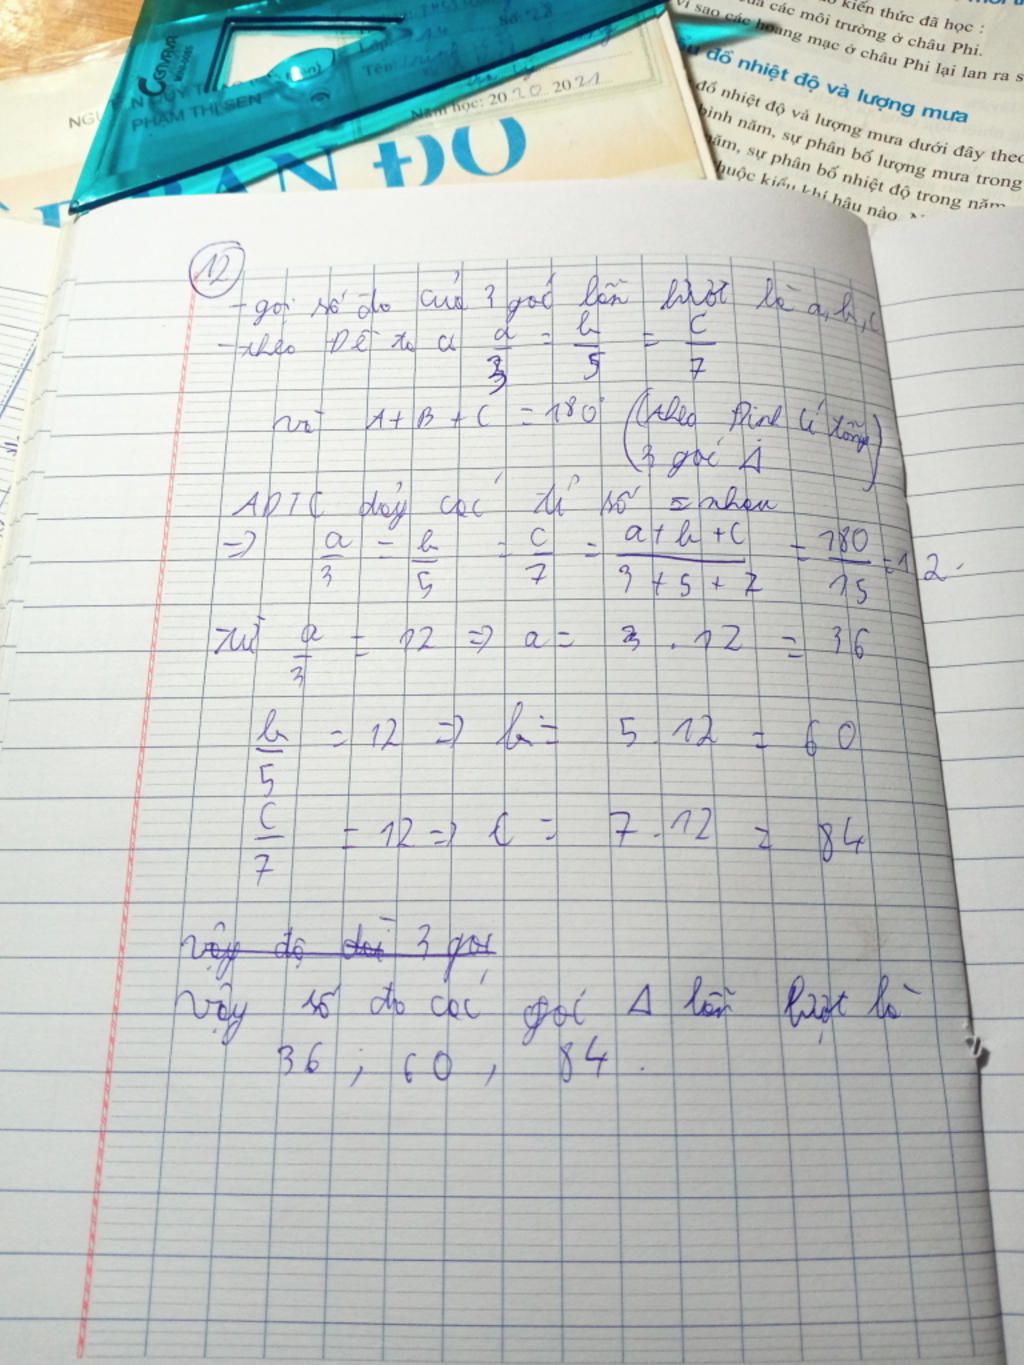 vì sao các hoang mạc ở châu Phi lại lan ra s
đồ nhiệt độ và lượng mưa
đồ nhiệt độ và lượng mưa dưới đây theo
bình năm, sự phân bố lượng mưa trong
năm, sự phân bố nhiệt độ trong năm
thuộc kiểu khí hậu nào
kiến thức đã học :
của các môi trường ở châu Phi.
Số: 28
Lớp:
Tên:
Địa lý
Năm học: 2020 2021
PHẠM THỊ SEN
BẢN ĐỒ
12
- gọi số đo của 3 góc lần lượt là a, b, c
- theo Đề ta có a/3 = b/5 = c/7
và A + B + C = 180° (theo Định lí tổng
3 góc Δ)
ADTC dãy các tỉ số = nhau
=> a/3 = b/5 = c/7 = a + b + c / 3 + 5 + 7 = 180/15 = 12.
Từ a/3 = 12 => a = 3 . 12 = 36
b/5 = 12 => b = 5 . 12 = 60
c/7 = 12 => c = 7 . 12 = 84
Vậy độ dài 3 góc
Vậy số đo các góc Δ lần lượt là
36 ; 60 , 84 .